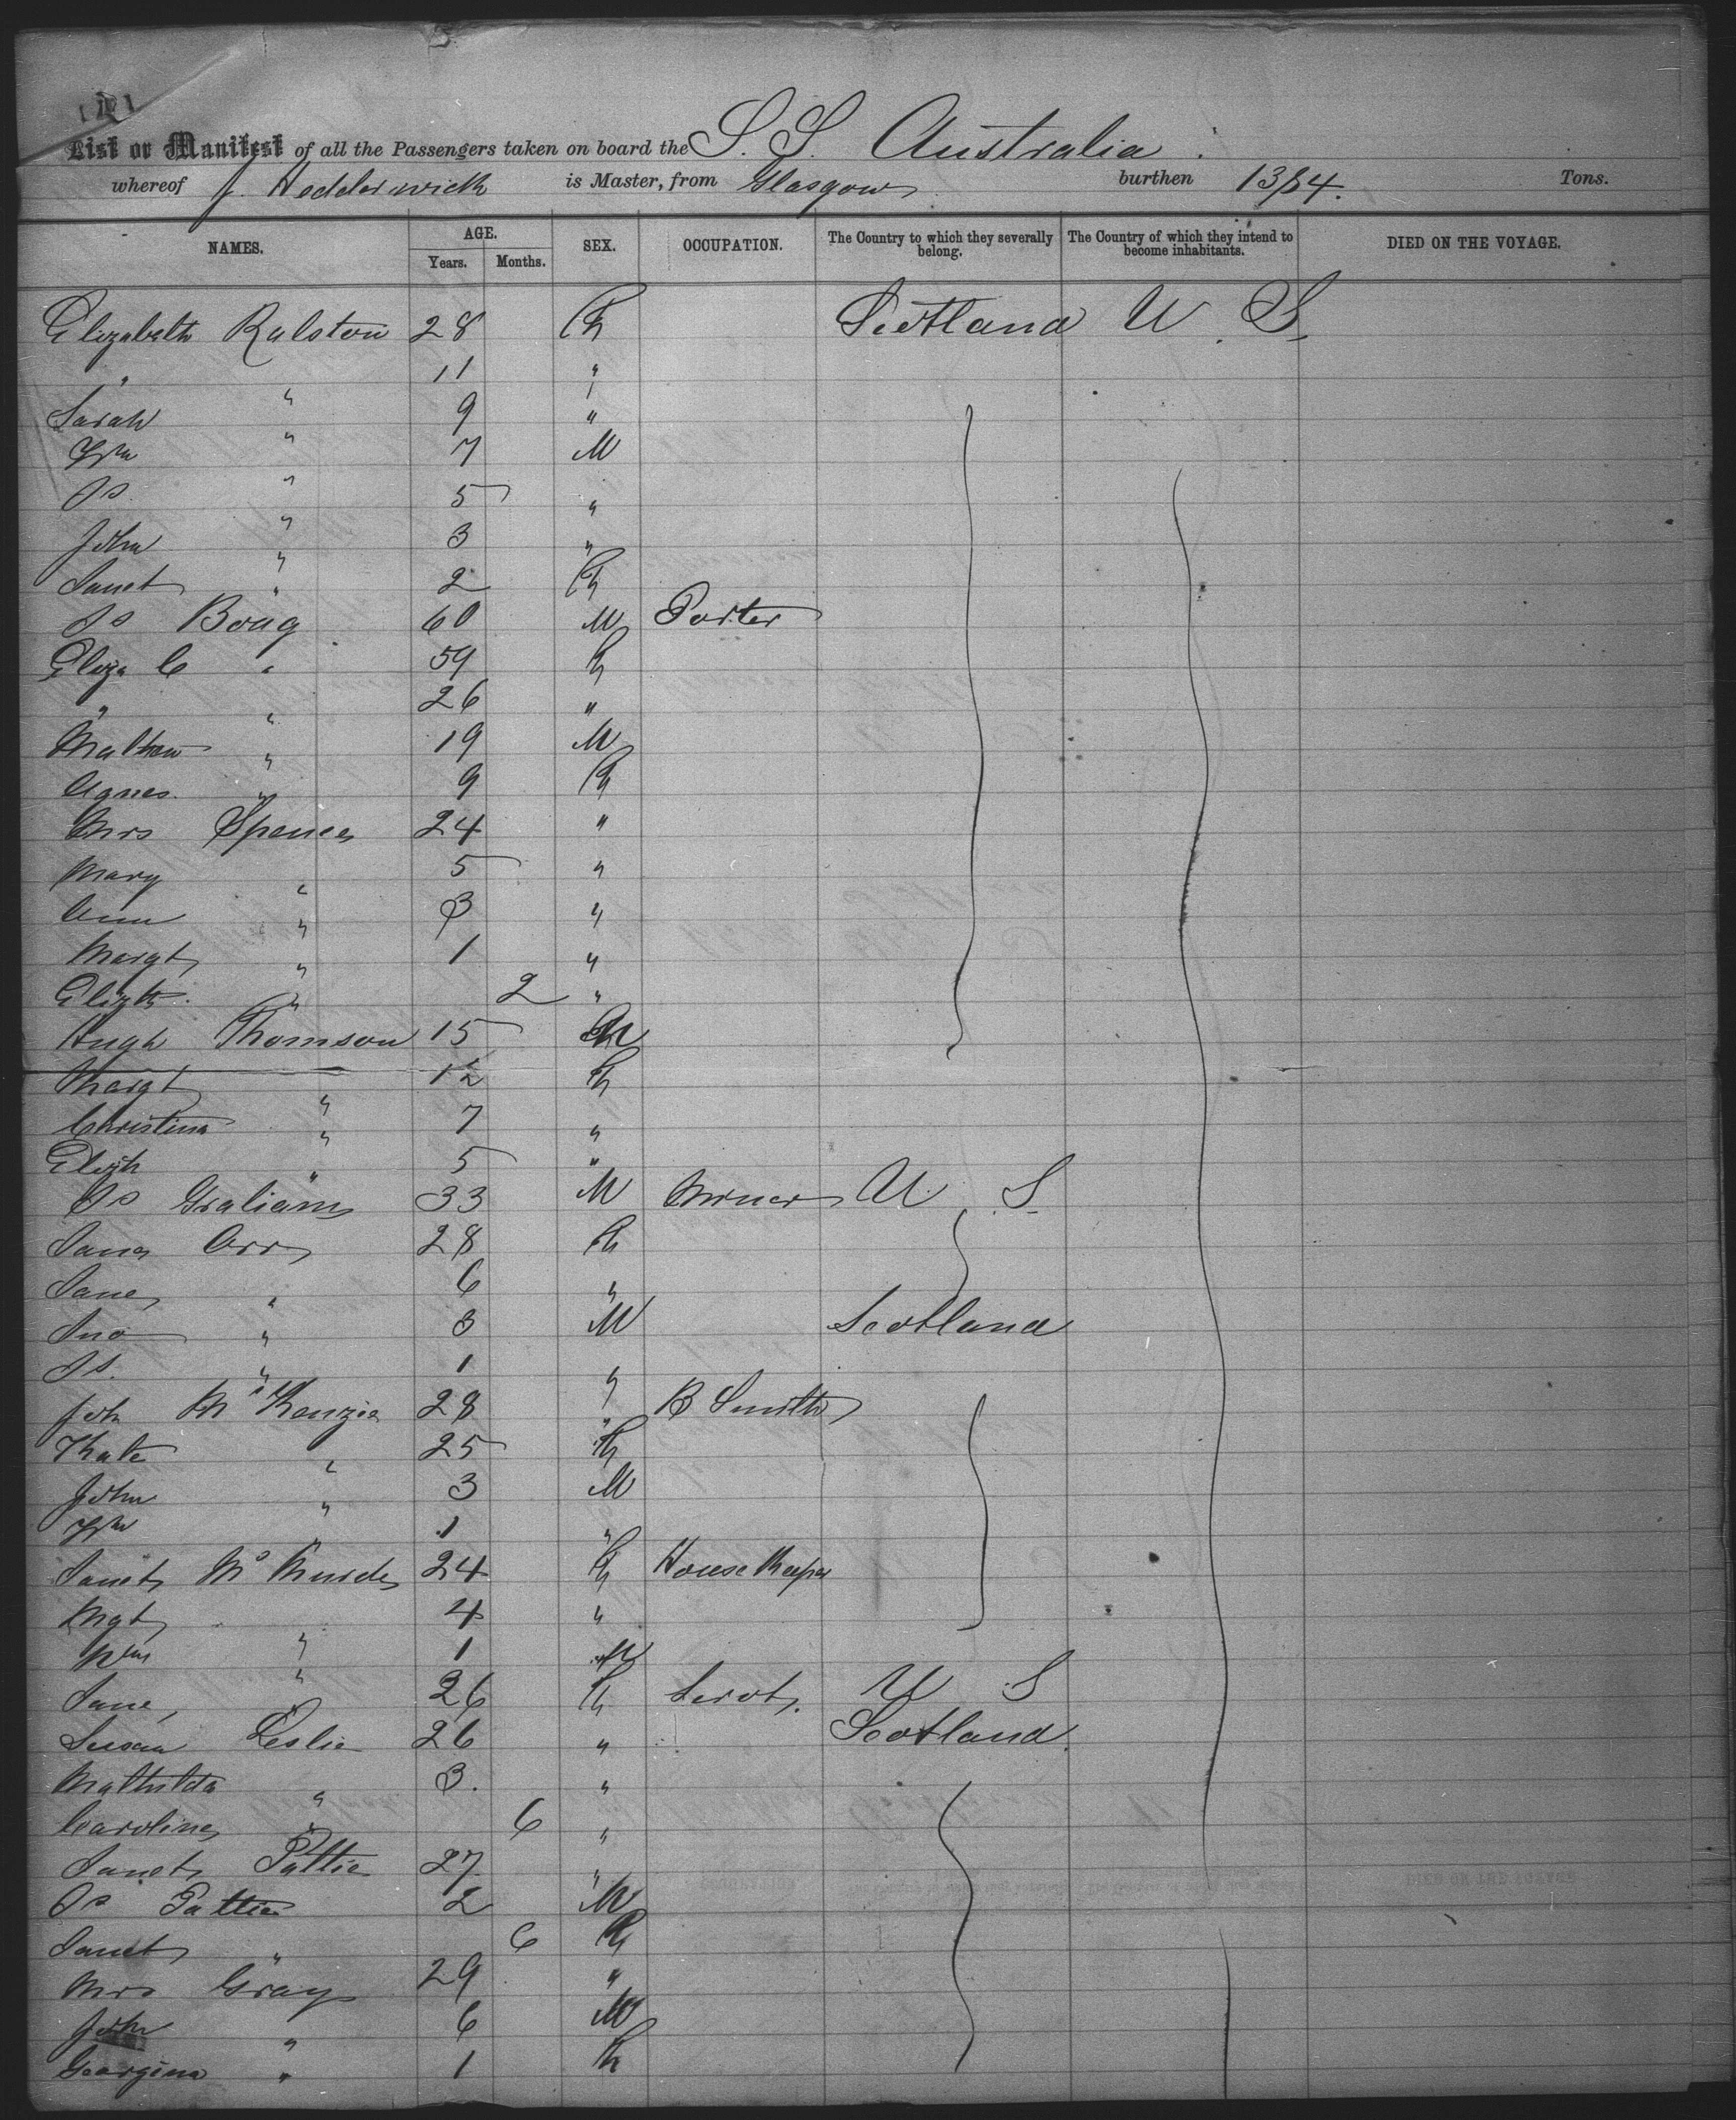 List or Manifest of all the Passengers taken on board the S. S. Australia
whereof J. Hedderwick is Master, from Glasgow burthen 1384. Tons.
NAMES. AGE. SEX. OCCUPATION. The Country to which they severally belong. The Country of which they intend to become inhabitants. DIED ON THE VOYAGE.
Years. Months.
Elizabeth Ralston 28 F Scotland U. S.
" " 11 "
Sarah " 9 "
Wm " 7 M
Js " 5 "
John " 3 "
Janet " 2 F
Js Boag 60 M Porter
Eliza C " 59 F
" " 26 "
Mathew " 19 M
Agnes " 9 F
Mrs Spence 24 "
Mary " 5 "
Ann " 3 "
Margt " 1 "
Elizth " 2 "
Hugh Thomson 15 M
Margt " 12 F
Christina " 7 "
Elizh " 5 "
Js Graham 33 M Miner U. S.
Jane Orr 28 F
Jane " 6 "
Jno " 3 M Scotland
Js. " 1 "
Joh McKenzie 28 " B Smith
Kate " 25 F
John " 3 M
Wm " 1 "
Janet Mc 24 F House Keeper
Mgt " 4 "
Wm " 1 M
Jane " 26 F Servt. U S
Susan Leslie 26 " Scotland
Mathilda " 3. "
Caroline " 6 "
Janet Pattie 27 "
Js Pattie 2 M
Janet " 6 F
Mrs Gray 29 "
John " 6 M
Georgina " 1 F